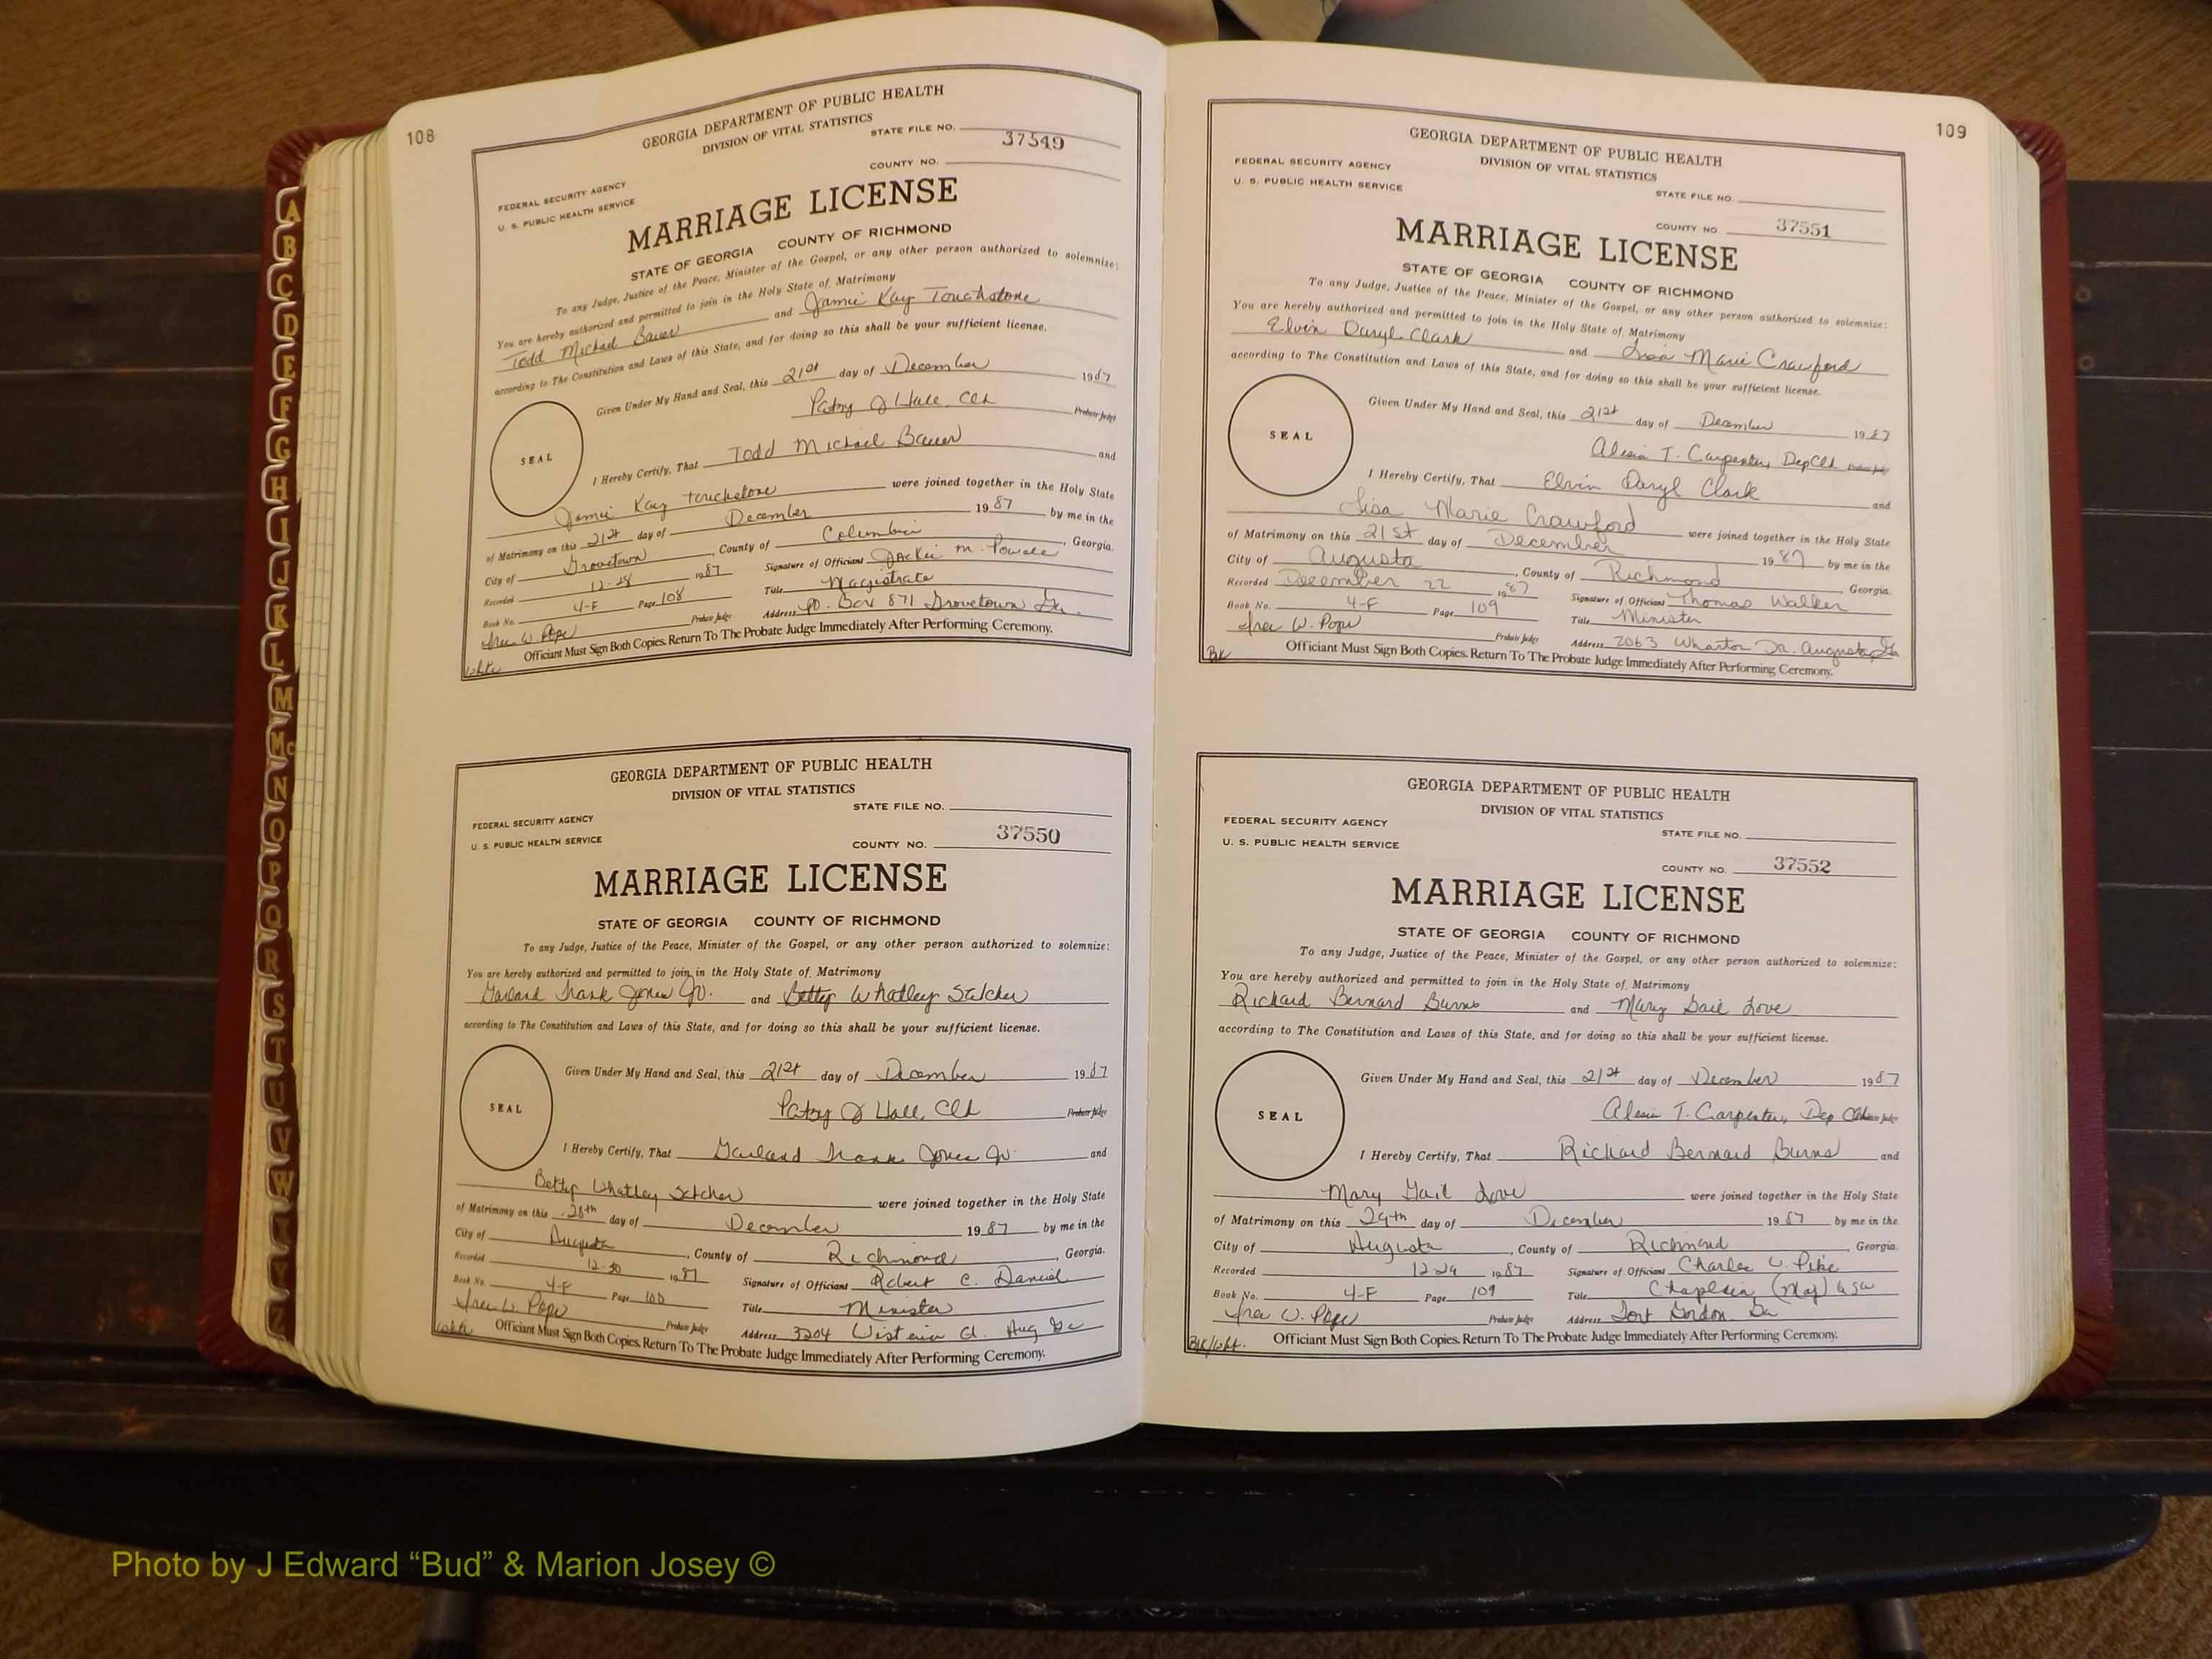 108
GEORGIA DEPARTMENT OF PUBLIC HEALTH
DIVISION OF VITAL STATISTICS
STATE FILE NO. 37549
COUNTY NO.
FEDERAL SECURITY AGENCY
U. S. PUBLIC HEALTH SERVICE
MARRIAGE LICENSE
STATE OF GEORGIA COUNTY OF RICHMOND
To any Judge, Justice of the Peace, Minister of the Gospel, or any other person authorized to solemnize:
You are hereby authorized and permitted to join in the Holy State of Matrimony
Todd Michael Bauer and Jamie Kay Touchstone
according to The Constitution and Laws of this State, and for doing so this shall be your sufficient license.
Given Under My Hand and Seal, this 21st day of December 1987
Patsy J Hall, Clk Probate Judge
SEAL
I Hereby Certify, That Todd Michael Bauer and
Jamie Kay Touchstone were joined together in the Holy State
of Matrimony on this 21st day of December 1987 by me in the
City of Grovetown, County of Columbia, Georgia.
Recorded 12-28 1987 Signature of Officiant Jackie M. Powell
Book No. 4-F Page 108 Title Magistrate
W. Pope Probate Judge Address P.O. Box 871 Grovetown Ga.
White Officiant Must Sign Both Copies. Return To The Probate Judge Immediately After Performing Ceremony.
GEORGIA DEPARTMENT OF PUBLIC HEALTH
DIVISION OF VITAL STATISTICS
STATE FILE NO.
FEDERAL SECURITY AGENCY
U. S. PUBLIC HEALTH SERVICE
COUNTY NO. 37550
MARRIAGE LICENSE
STATE OF GEORGIA COUNTY OF RICHMOND
To any Judge, Justice of the Peace, Minister of the Gospel, or any other person authorized to solemnize:
You are hereby authorized and permitted to join in the Holy State of Matrimony
Garland Frank Jones Jr. and Betty Whatley Satcher
according to The Constitution and Laws of this State, and for doing so this shall be your sufficient license.
Given Under My Hand and Seal, this 21st day of December 1987
Patsy J Hall, Clk Probate Judge
SEAL
I Hereby Certify, That Garland Frank Jones Jr. and
Betty Whatley Satcher were joined together in the Holy State
of Matrimony on this 28th day of December 1987 by me in the
City of Augusta, County of Richmond, Georgia.
Recorded 12-30 1987 Signature of Officiant Robert C. Daniel
Book No. 4-F Page 108 Title Minister
W. Pope Probate Judge Address 3204 Wisteria Ct. Aug Ga
White Officiant Must Sign Both Copies. Return To The Probate Judge Immediately After Performing Ceremony.
109
GEORGIA DEPARTMENT OF PUBLIC HEALTH
DIVISION OF VITAL STATISTICS
FEDERAL SECURITY AGENCY
U. S. PUBLIC HEALTH SERVICE
STATE FILE NO.
COUNTY NO. 37551
MARRIAGE LICENSE
STATE OF GEORGIA COUNTY OF RICHMOND
To any Judge, Justice of the Peace, Minister of the Gospel, or any other person authorized to solemnize:
You are hereby authorized and permitted to join in the Holy State of Matrimony
Elvin Daryl Clark and Lisa Marie Crawford
according to The Constitution and Laws of this State, and for doing so this shall be your sufficient license.
Given Under My Hand and Seal, this 21st day of December 1987
Alesia T. Carpenter, Dep Clk Probate Judge
SEAL
I Hereby Certify, That Elvin Daryl Clark and
Lisa Marie Crawford were joined together in the Holy State
of Matrimony on this 21st day of December 1987 by me in the
City of Augusta, County of Richmond Georgia.
Recorded December 22 1987 Signature of Officiant Thomas Walker
Book No. 4-F Page 109 Title Minister
W. Pope Probate Judge Address 2063 Wharton Dr. Augusta, Ga
Blk Officiant Must Sign Both Copies. Return To The Probate Judge Immediately After Performing Ceremony.
GEORGIA DEPARTMENT OF PUBLIC HEALTH
DIVISION OF VITAL STATISTICS
FEDERAL SECURITY AGENCY
U. S. PUBLIC HEALTH SERVICE
STATE FILE NO.
COUNTY NO. 37552
MARRIAGE LICENSE
STATE OF GEORGIA COUNTY OF RICHMOND
To any Judge, Justice of the Peace, Minister of the Gospel, or any other person authorized to solemnize:
You are hereby authorized and permitted to join in the Holy State of Matrimony
Richard Bernard Burns and Mary Gail Love
according to The Constitution and Laws of this State, and for doing so this shall be your sufficient license.
Given Under My Hand and Seal, this 21st day of December 1987
Alesia T. Carpenter, Dep Clk Probate Judge
SEAL
I Hereby Certify, That Richard Bernard Burns and
Mary Gail Love were joined together in the Holy State
of Matrimony on this 29th day of December 1987 by me in the
City of Augusta, County of Richmond, Georgia.
Recorded 12-29 1987 Signature of Officiant Charles W. Pike
Book No. 4-F Page 109 Title Chaplain (Maj) USA
W. Pope Probate Judge Address Fort Gordon Ga
Blk/Wht. Officiant Must Sign Both Copies. Return To The Probate Judge Immediately After Performing Ceremony.
A
B
C
D
E
F
G
H
I
J
K
L
M
Mc
N
O
P
Q
R
S
T
U
V
W
Z
Photo by J Edward “Bud” & Marion Josey ©